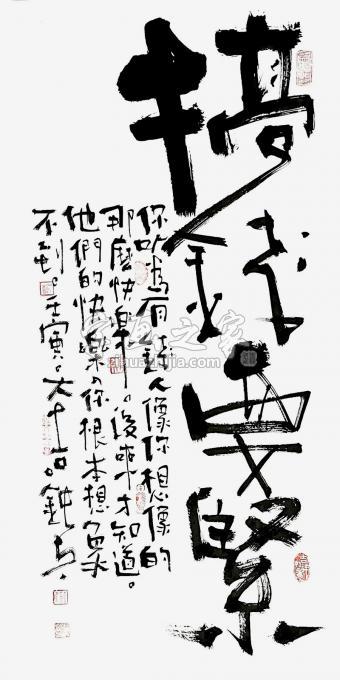 搞錢要緊
你以為有錢人像你想像的
那麼快樂。後來才知道。
他們的快樂你根本想象
不到。壬寅。